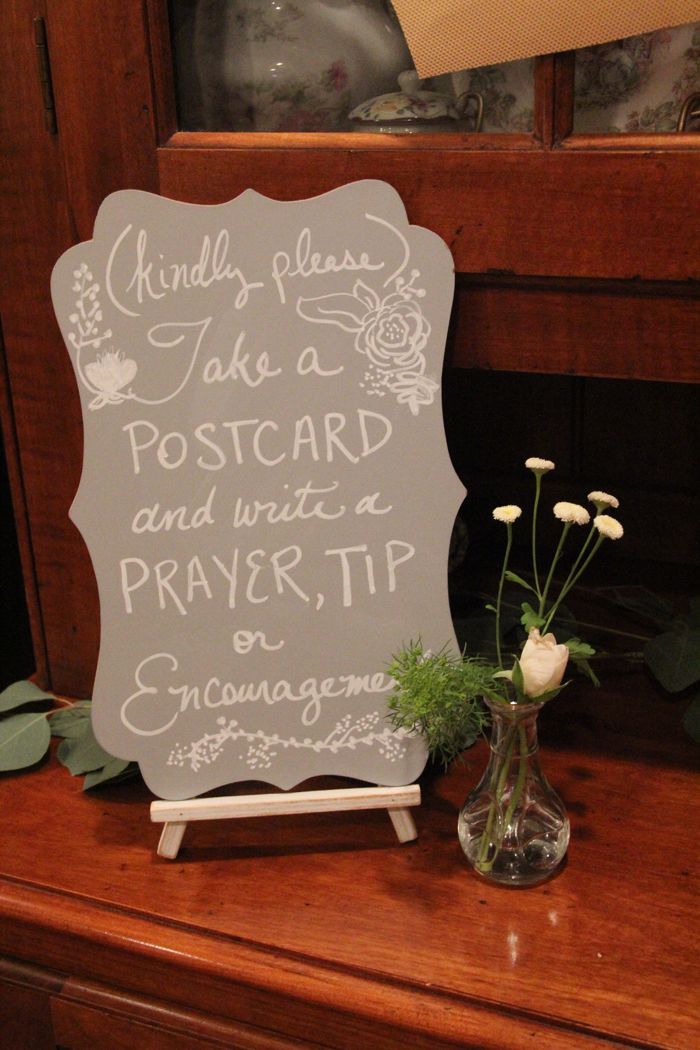 (kindly please)
Take a
POSTCARD
and write a
PRAYER, TIP
or
Encourageme